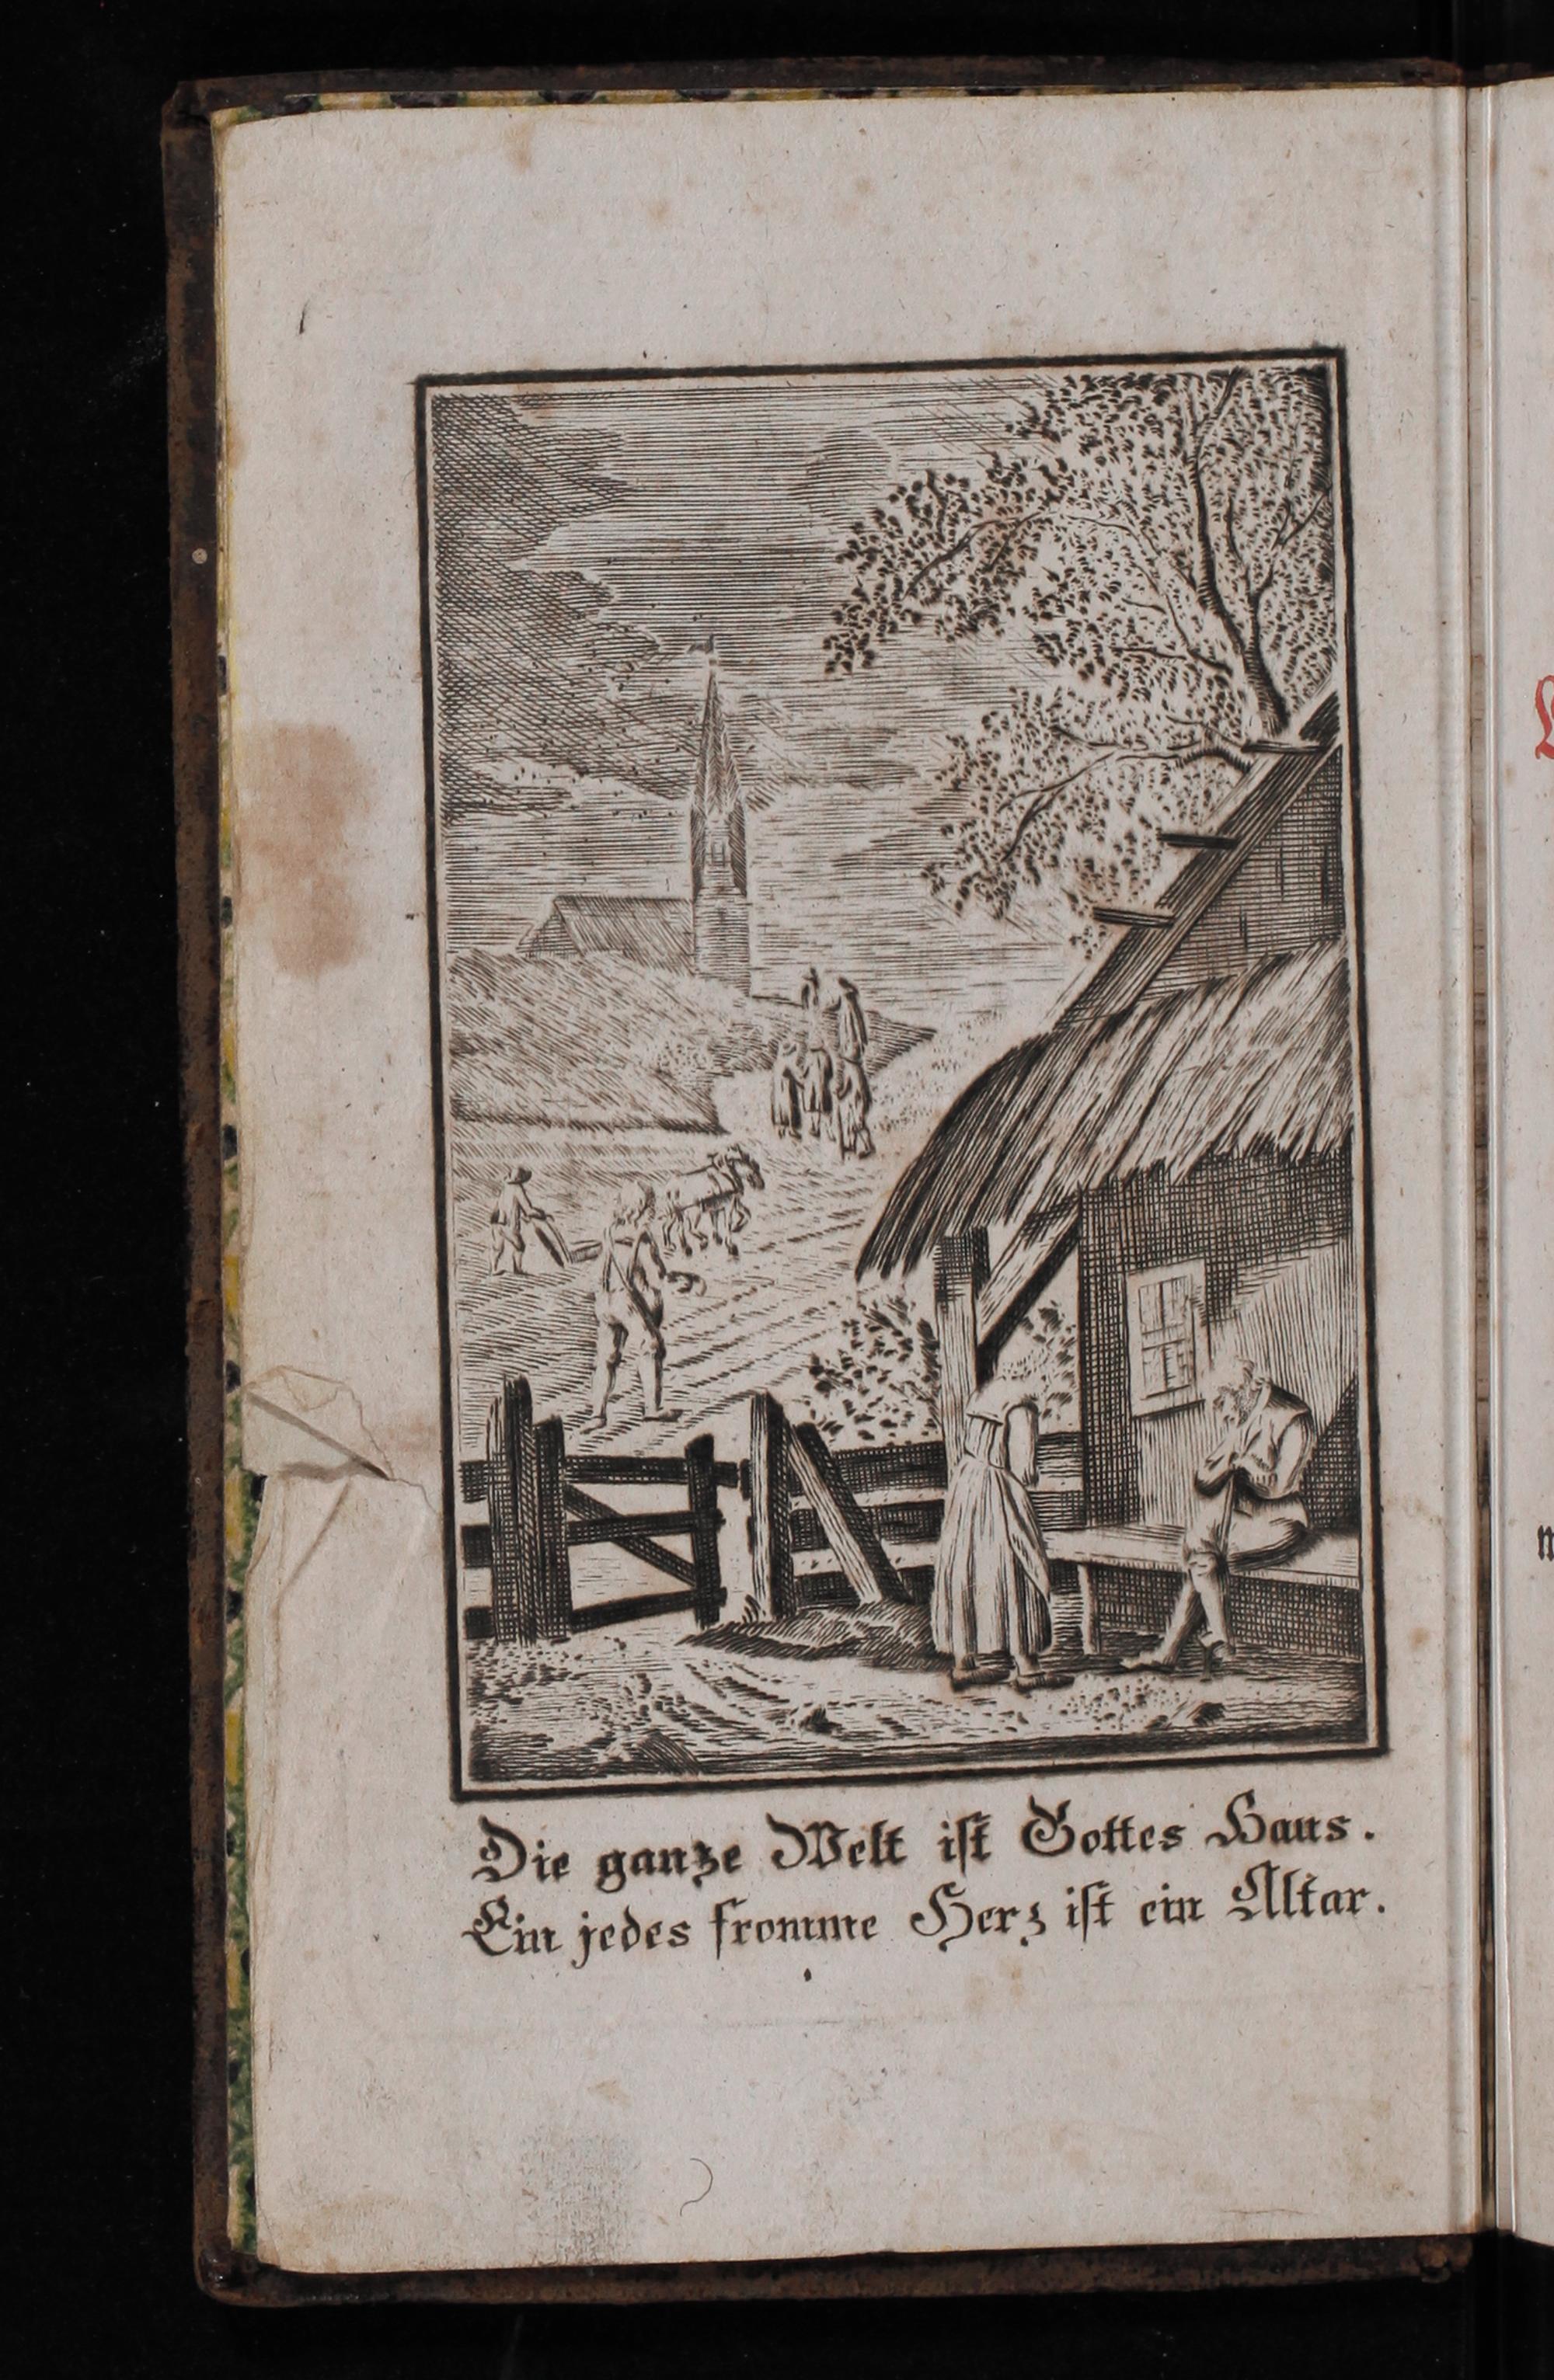 Die ganze Welt ist Gottes Haus.
Ein jedes fromme Herz ist ein Altar.